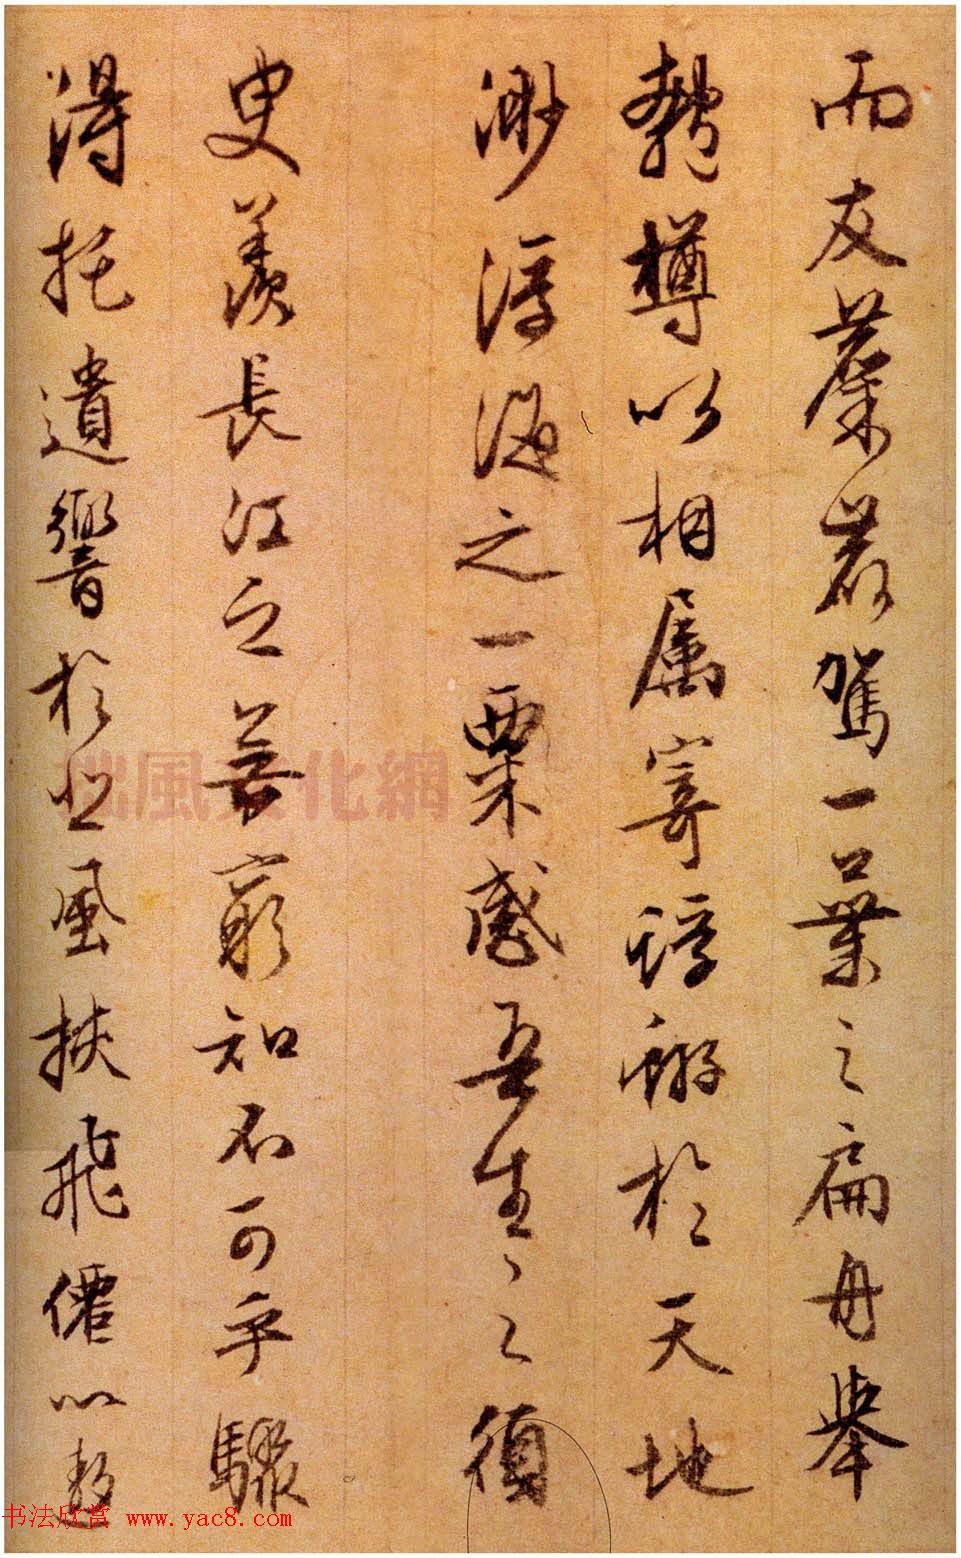 而友麋鹿駕一葉之扁舟舉
匏樽以相属寄蜉蝣於天地
渺浮海之一粟感吾生之須
臾羨長江之無窮知不可乎驟
得托遺響於悲風挾飛僊以遨
風 化網
书法欣赏 www.yac8.com